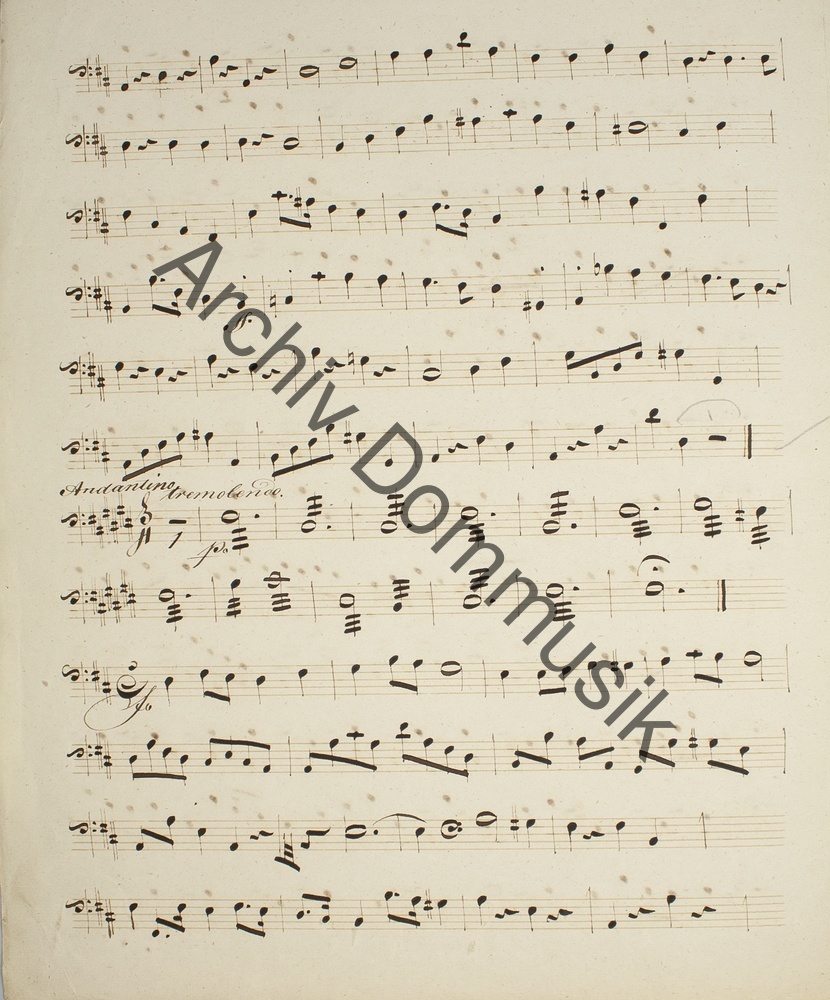 Andantino tremolando.
1
p.
Archiv Dommusik